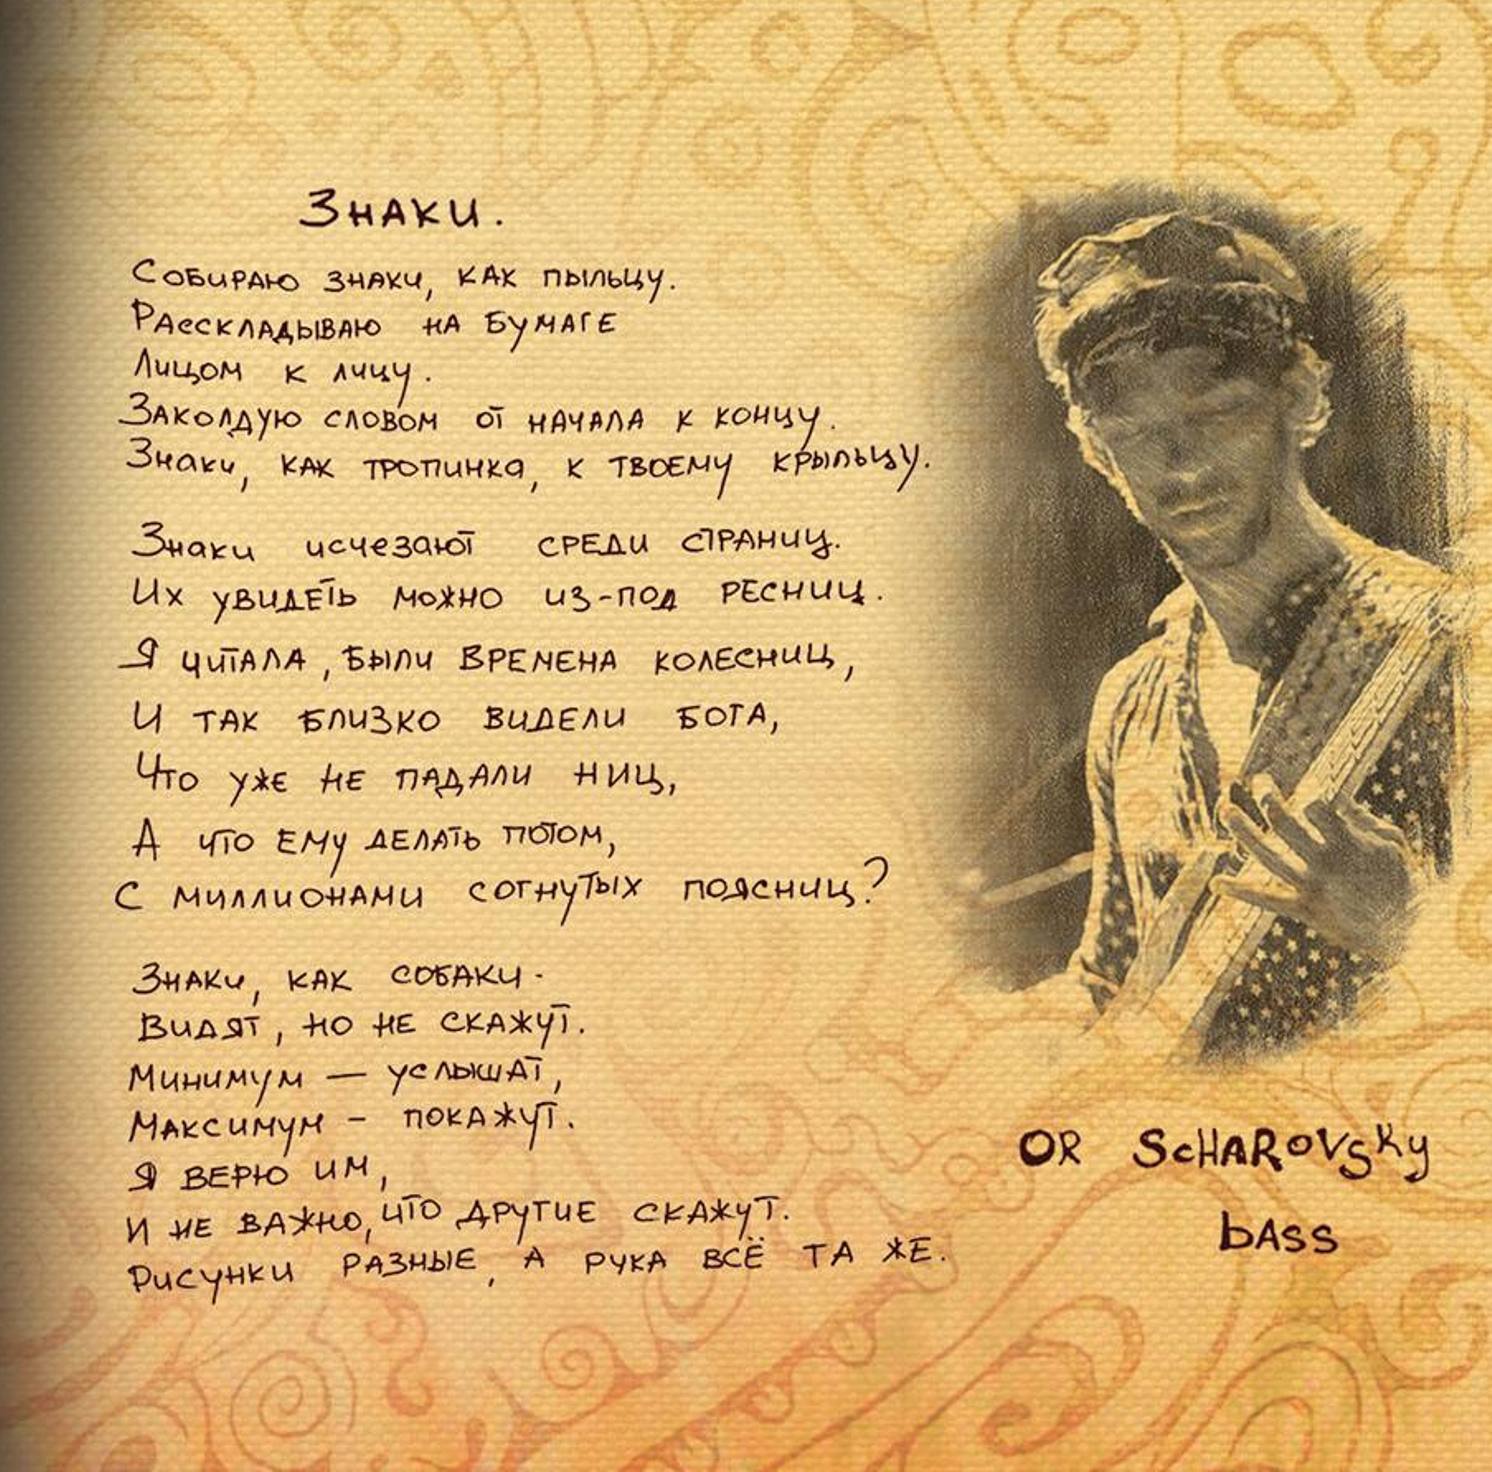 Знаки.
Собираю знаки, как пыльцу.
Расскладываю на бумаге
Лицом к лицу.
Заколдую словом от начала к концу.
Знаки, как тропинка, к твоему крыльцу.
Знаки исчезают среди страниц.
Их увидеть можно из-под ресниц.
Я читала, были времена колесниц,
И так близко видели Бога,
Что уже не падали ниц,
А что ему делать потом,
С миллионами согнутых поясниц?
Знаки, как собаки -
Видят, но не скажут.
Минимум — услышат,
Максимум - покажут.
Я верю им,
И не важно, что другие скажут.
Рисунки разные, а рука всё та же.
OR SCHAROVSKY
BASS